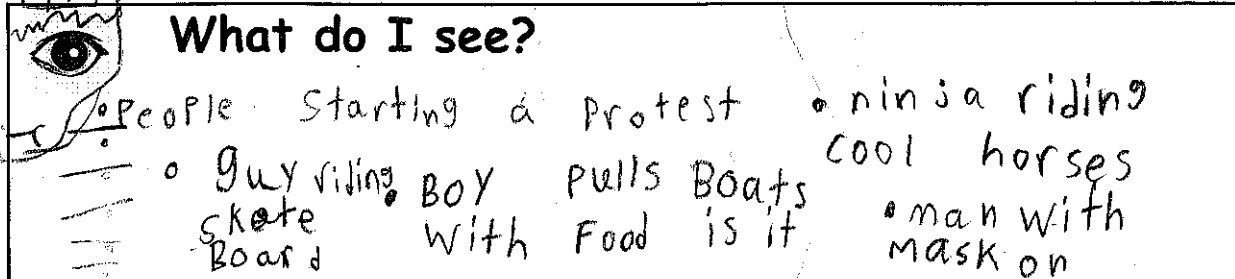 What do I see?
• People Starting a Protest
• guy riding
skate
Board
• BOY pulls Boats
with Food is it
• ninja riding
cool horses
• man with
mask on